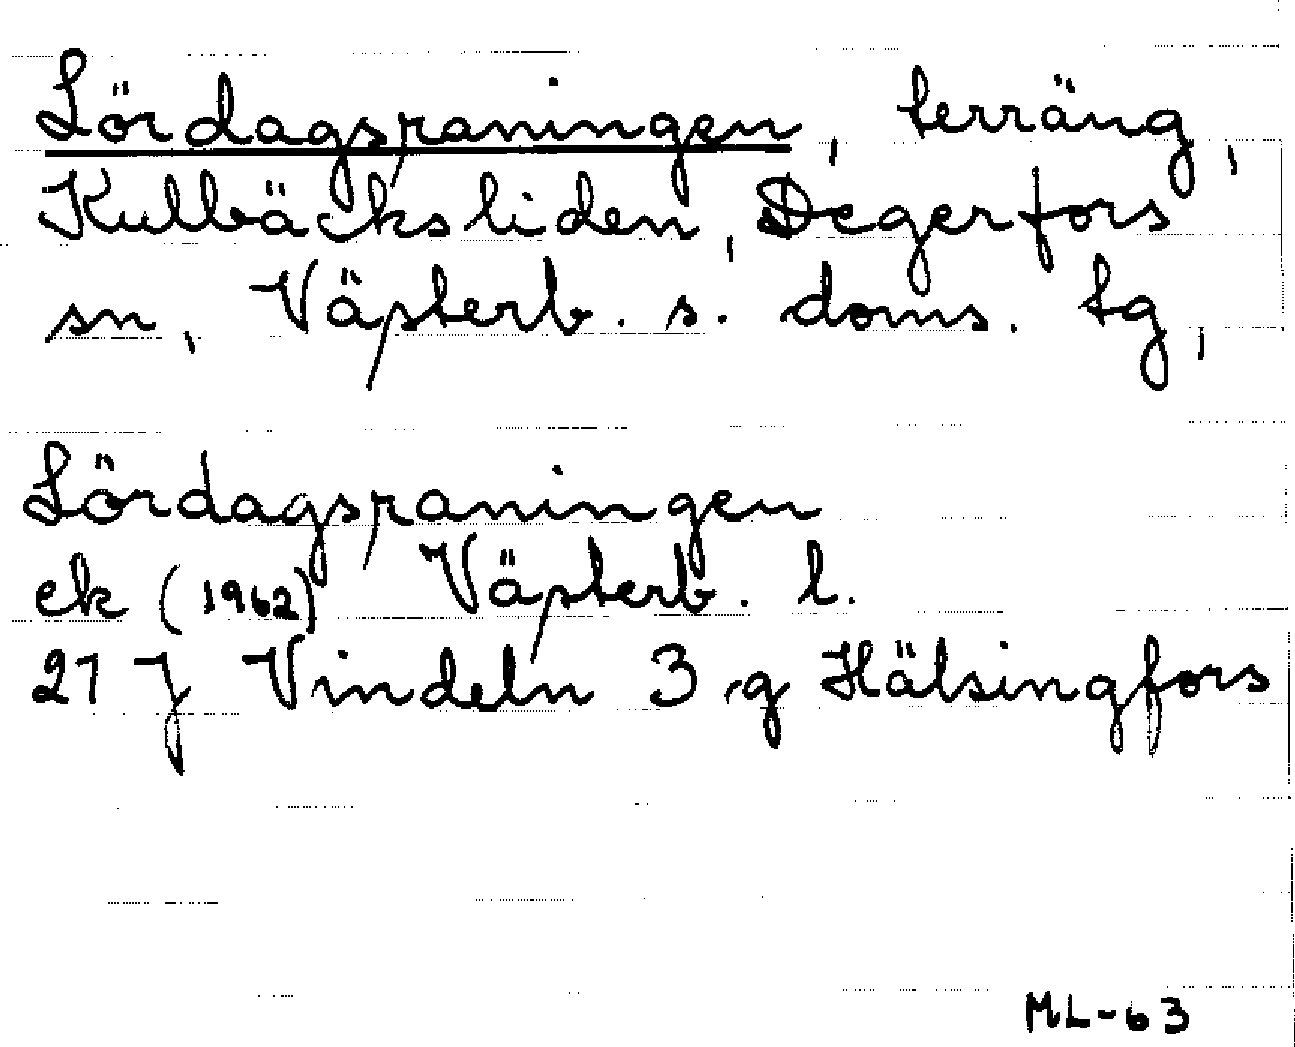 Lördagsraningen, terräng,
Kullbäcksliden, Degerfors
sn, Västerb. s. doms. tg,
Lördagsraningen
ek (1962) Västerb. l.
21 J Vindeln 3 g Hälsingfors
ML-63